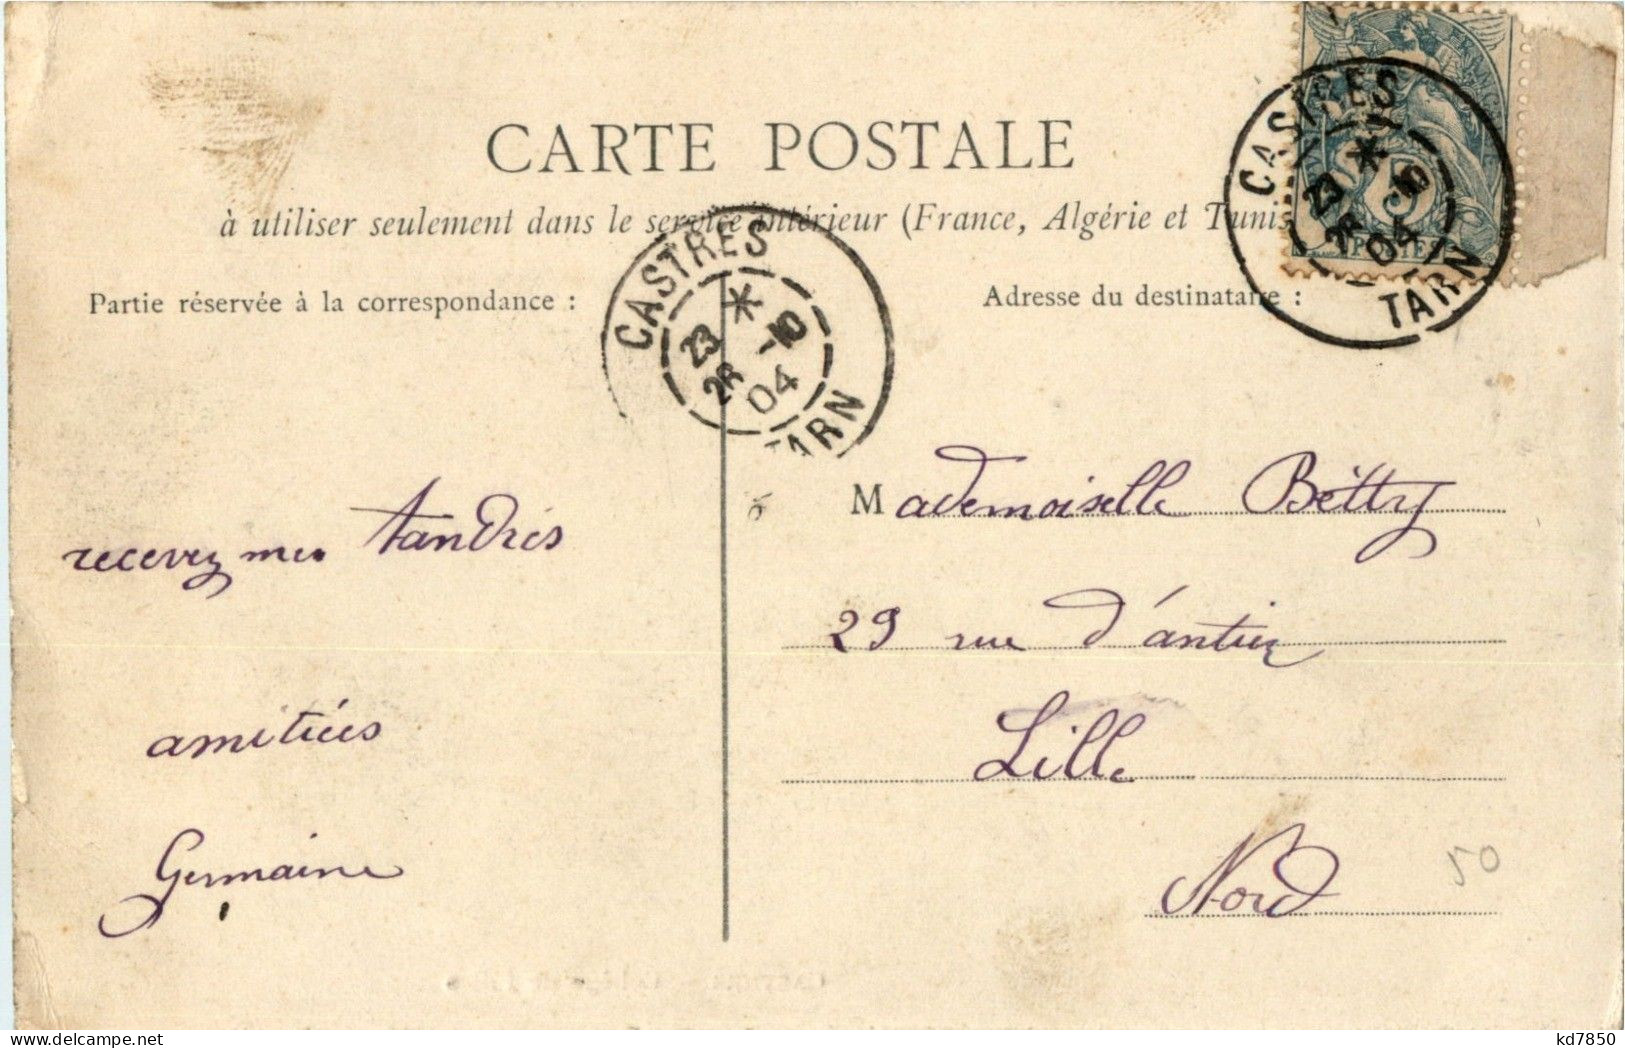 CARTE POSTALE
à utiliser seulement dans le service intérieur (France, Algérie et Tunis
Partie réservée à la correspondance :
Adresse du destinataire :
CASTRES
23 -10
26 04
TARN
CASTRES
23 -10
26 04
TARN
POSTES
recevez mes tandrés
amitiées
Germaine
Mademoiselle Bétty
29 rue d'antin
Lille
Nord
50
kd7850